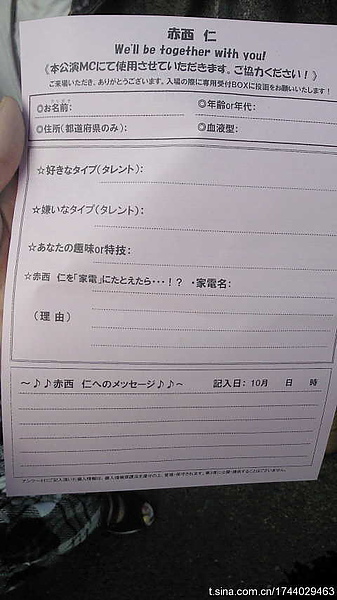 赤西 仁
We'll be together with you!
《本公演MCにて使用させていただきます。ご協力ください！》
ご来場いただき、ありがとうございます。入場の際に専用受付BOXに投函をお願いいたします！
◎お名前: ◎年齢or年代:
◎住所(都道府県のみ): ◎血液型:
☆好きなタイプ(タレント):
☆嫌いなタイプ(タレント):
☆あなたの趣味or特技:
☆赤西 仁を「家電」にたとえたら・・・!? ・家電名:
(理由)
～♪♪赤西 仁へのメッセージ♪♪～ 記入日: 10月 日 時
t.sina.com.cn/1744029463